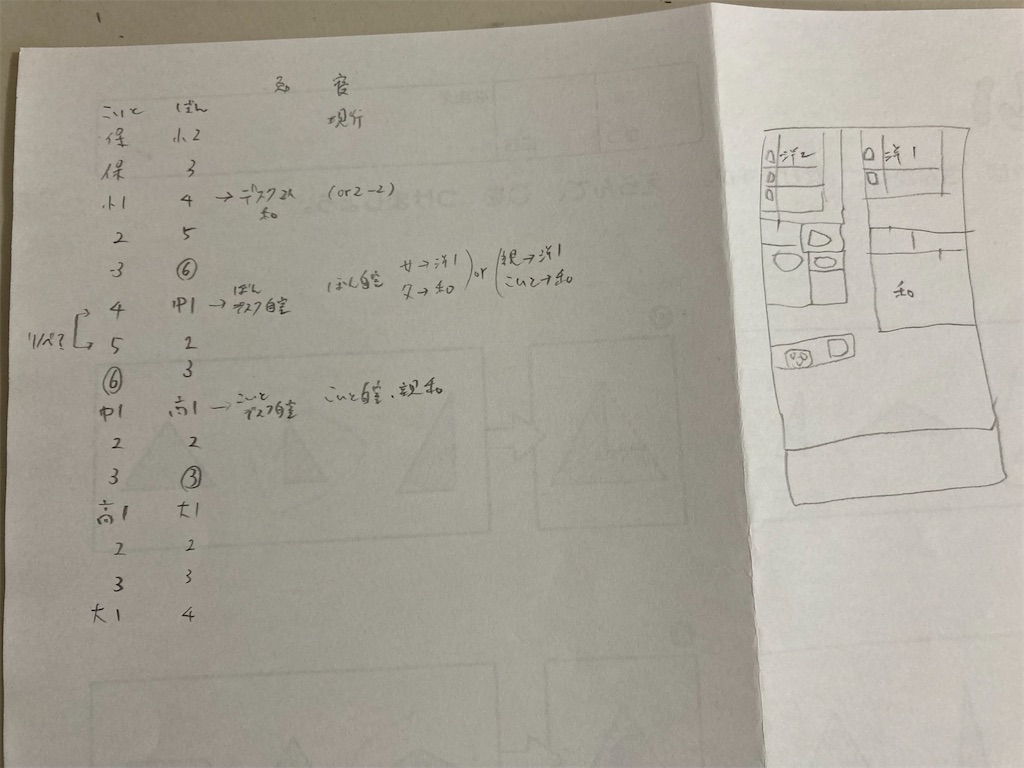 こいと ぽん
保 小2 現行
保 3
小1 4 →デスク2人 和 (or 2-2)
2 5
3 ⑥
4 中1 →ぽん デスク自室 ぽん自室 (女→洋1 父→和) or (親→洋1 こいと→和)
リハ? 5 2
⑥ 3
中1 高1 →こいと デスク自室 こいと自室、親和
2 2
3 ③
高1 大1
2 2
3 3
大1 4
洋2 洋1
和